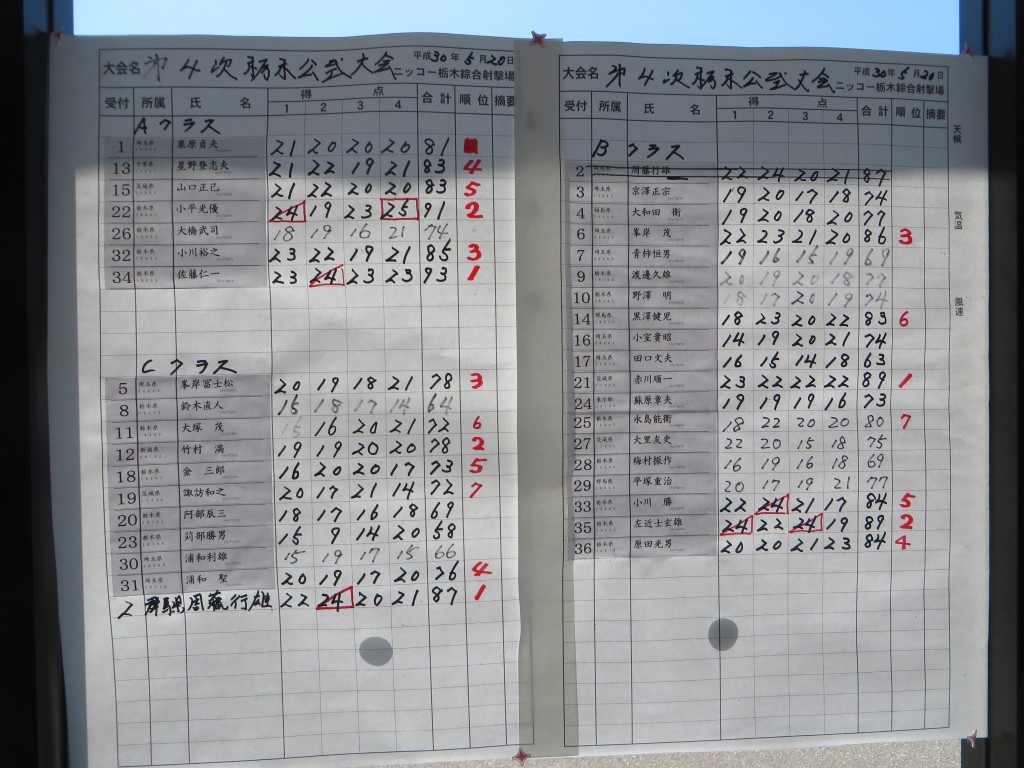 大会名 第4次栃木公式大会 平成30年5月20日
ニッコー栃木綜合射撃場
受付 所属 氏 名 得 点 合計 順位 摘要
1 2 3 4
Aクラス
1 埼玉県 栗原貞夫 21 20 20 20 81
13 千葉県 星野登志夫 21 22 19 21 83 4
15 茨城県 山口正己 21 22 20 20 83 5
22 栃木県 小平光優 24 19 23 25 91 2
26 栃木県 大橋武司 18 19 16 21 74
32 栃木県 小川裕之 23 22 19 21 85 3
34 栃木県 佐藤仁一 23 24 23 23 93 1
Cクラス
5 埼玉県 峯岸冨士松 20 19 18 21 78 3
8 栃木県 鈴木直人 15 18 17 14 64
11 栃木県 大塚 茂 15 16 20 21 72 6
12 新潟県 竹村 満 19 19 20 20 78 2
18 栃木県 金 三郎 16 20 20 17 73 5
19 茨城県 諏訪和之 20 17 21 14 72 7
20 栃木県 阿部辰三 18 17 16 18 69
23 栃木県 苅部勝男 15 9 14 20 58
30 埼玉県 浦和利雄 15 19 17 15 66
31 埼玉県 浦和 聖 20 19 17 20 76 4
2 群馬県 周藤行雄 22 24 20 21 87 1
大会名 第4次栃木公式大会 平成30年5月20日
ニッコー栃木綜合射撃場
受付 所属 氏 名 得 点 合計 順位 摘要
1 2 3 4
Bクラス
2 群馬県 周藤行雄 22 24 20 21 87
3 埼玉県 京澤正宗 19 20 17 18 74
4 福島県 大和田 衛 19 20 18 20 77
6 埼玉県 峯岸 茂 22 23 21 20 86 3
7 埼玉県 青柿恒男 19 16 15 19 69
9 栃木県 渡邊久雄 20 19 20 18 77
10 栃木県 野澤 明 18 17 20 19 74
14 群馬県 黒澤健児 18 23 20 22 83 6
16 埼玉県 小室貴昭 14 19 20 21 74
17 埼玉県 田口文夫 16 15 14 18 63
21 茨城県 赤川順一 23 22 22 22 89 1
24 東京都 蘇原章夫 19 19 19 16 73
25 栃木県 永島能衛 18 22 20 20 80 7
27 茨城県 大里友史 22 20 15 18 75
28 栃木県 梅村振作 16 19 16 18 69
29 群馬県 平塚重治 20 17 19 21 77
33 栃木県 小川 勝 22 24 21 17 84 5
35 栃木県 左近士玄雄 24 22 24 19 89 2
36 栃木県 原田光男 20 20 21 23 84 4
天候
気温
風速